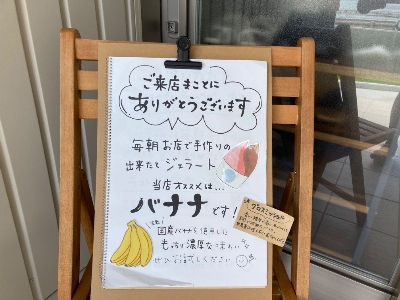 ご来店まことに
ありがとうございます
毎朝お店で手作りの
出来たて ジェラート
当店オススメは…
バナナです!
国産バナナを使用した
もっちり濃厚な味わい
ぜひお試しください